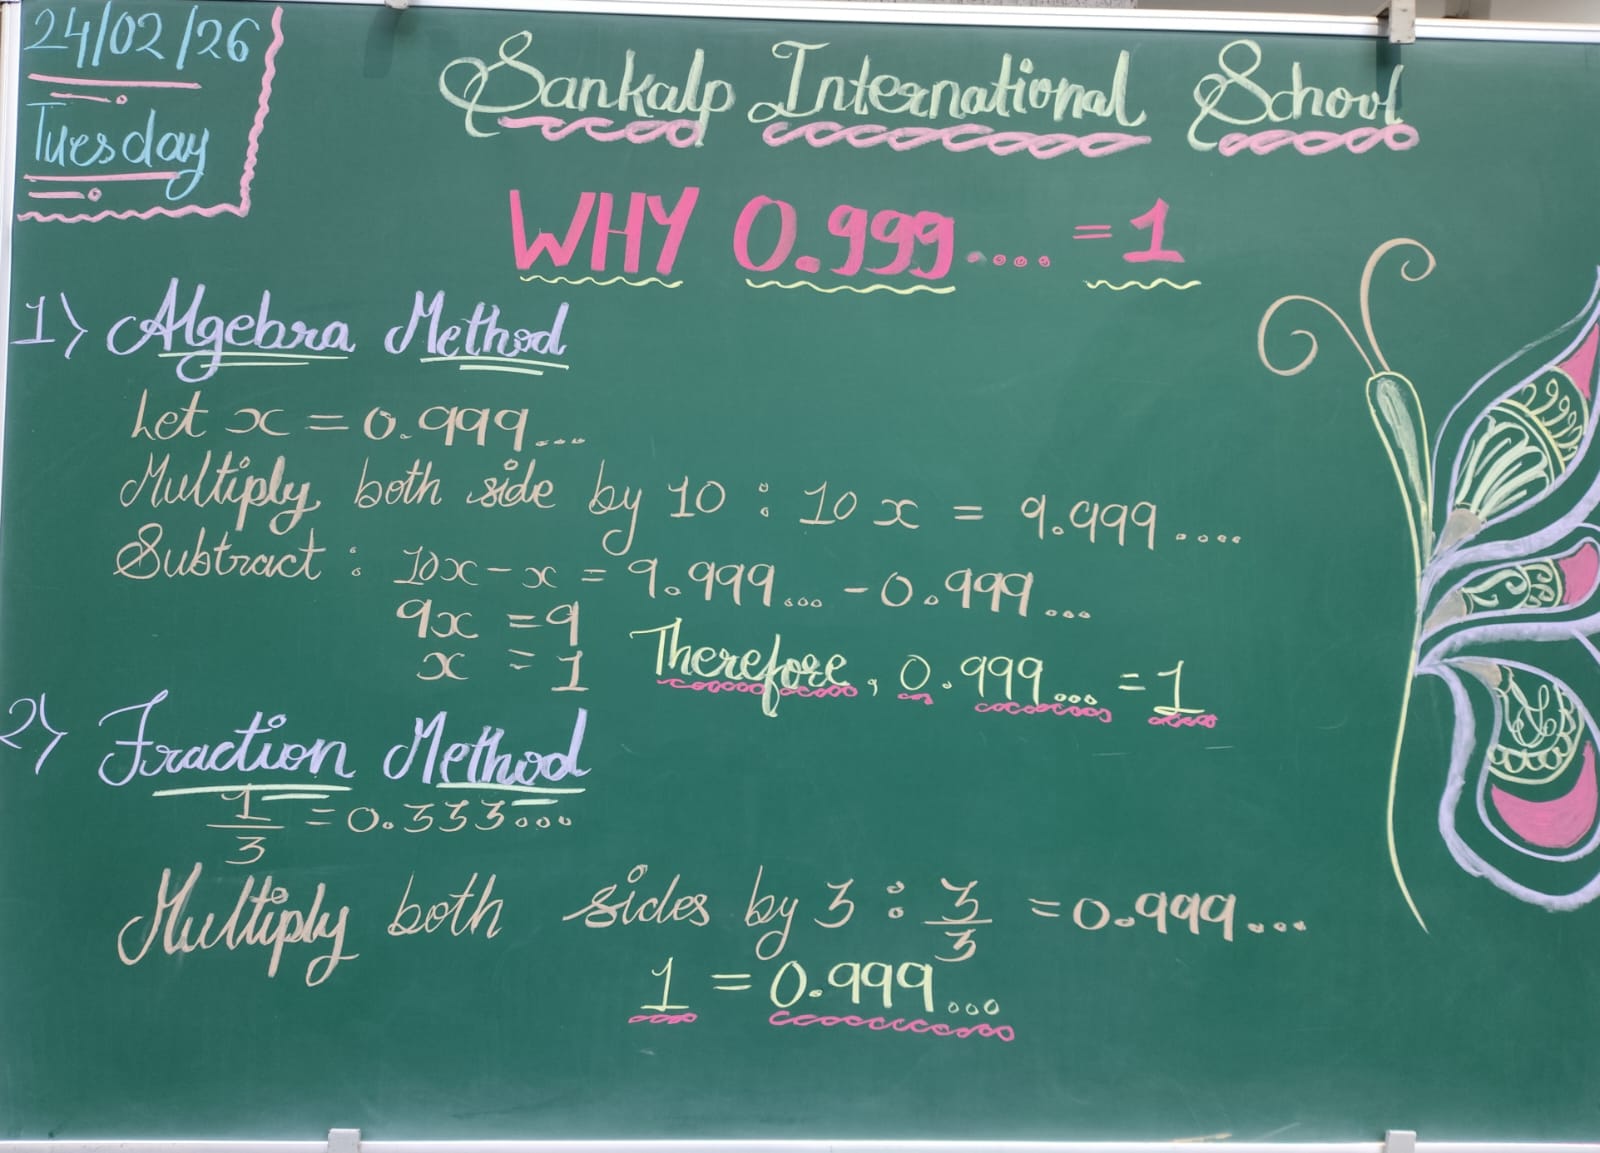 24/02/26
Tuesday
Sankalp International School
WHY 0.999.... = 1
1) Algebra Method
Let x = 0.999...
Multiply both side by 10 : 10x = 9.999....
Subtract : 10x - x = 9.999... - 0.999...
9x = 9
x = 1
Therefore, 0.999... = 1
2) Fraction Method
1/3 = 0.333...
Multiply both sides by 3 : 3/3 = 0.999...
1 = 0.999...